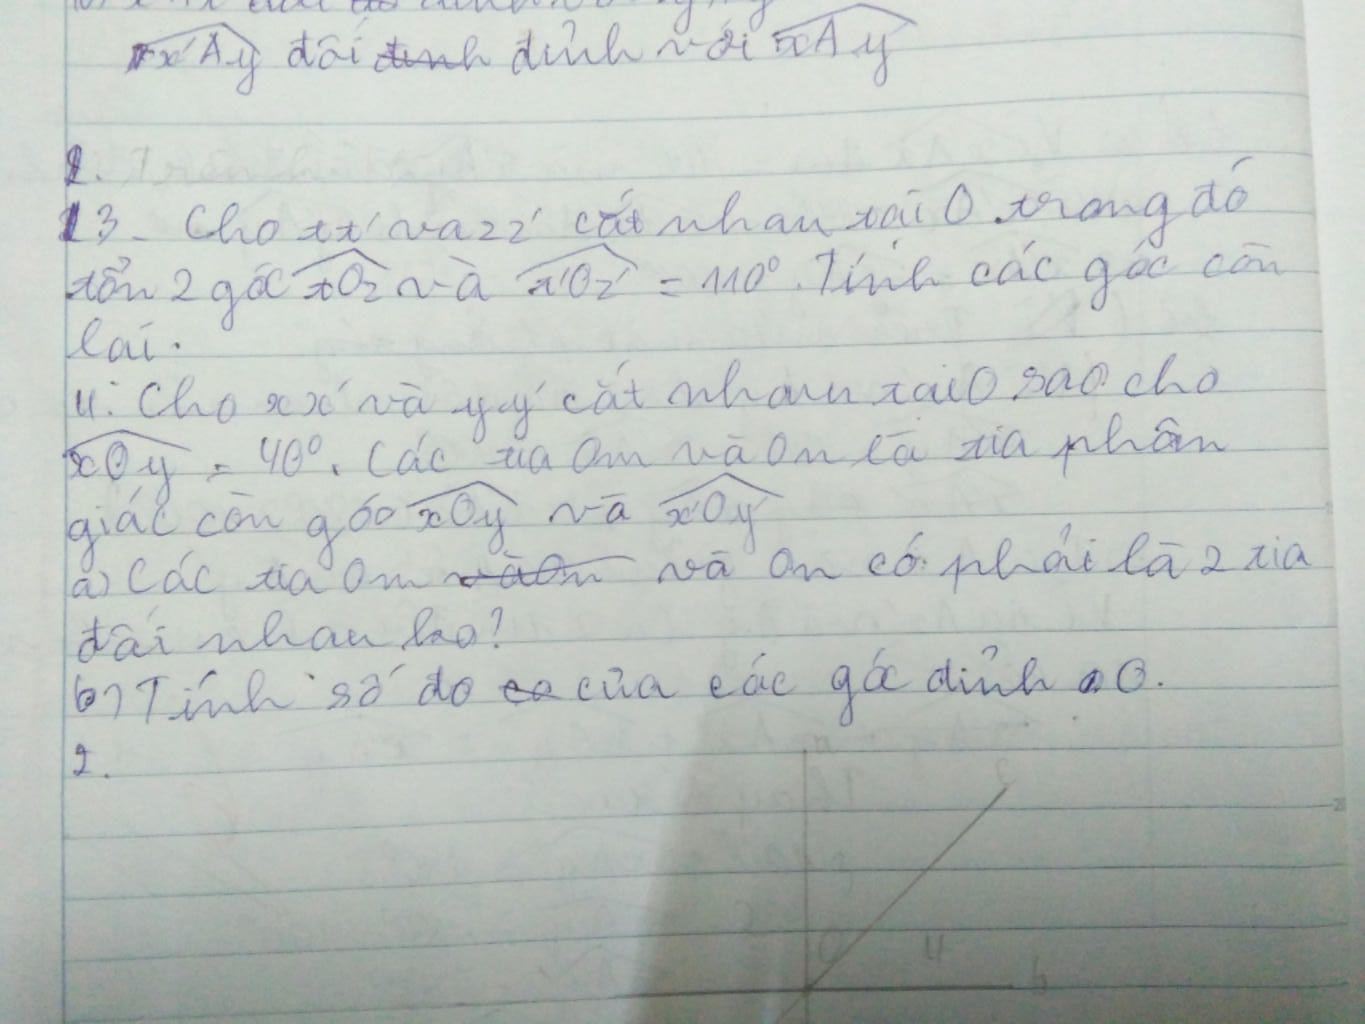 x'Ay' đối đỉnh với xAy
1.
3. Cho xx' và zz' cắt nhau tại O trong đó
tổn 2 góc xOz và x'Oz' = 110°. Tính các góc còn
lại.
4. Cho xx' và yy' cắt nhau tại O sao cho
xOy = 40°. Các tia Om và On là tia phân
giác còn góc xOy và x'Oy'
a) Các tia Om và On có phải là 2 tia
đối nhau ko?
b) Tính số đo của các góc đỉnh O.
2.
O 4